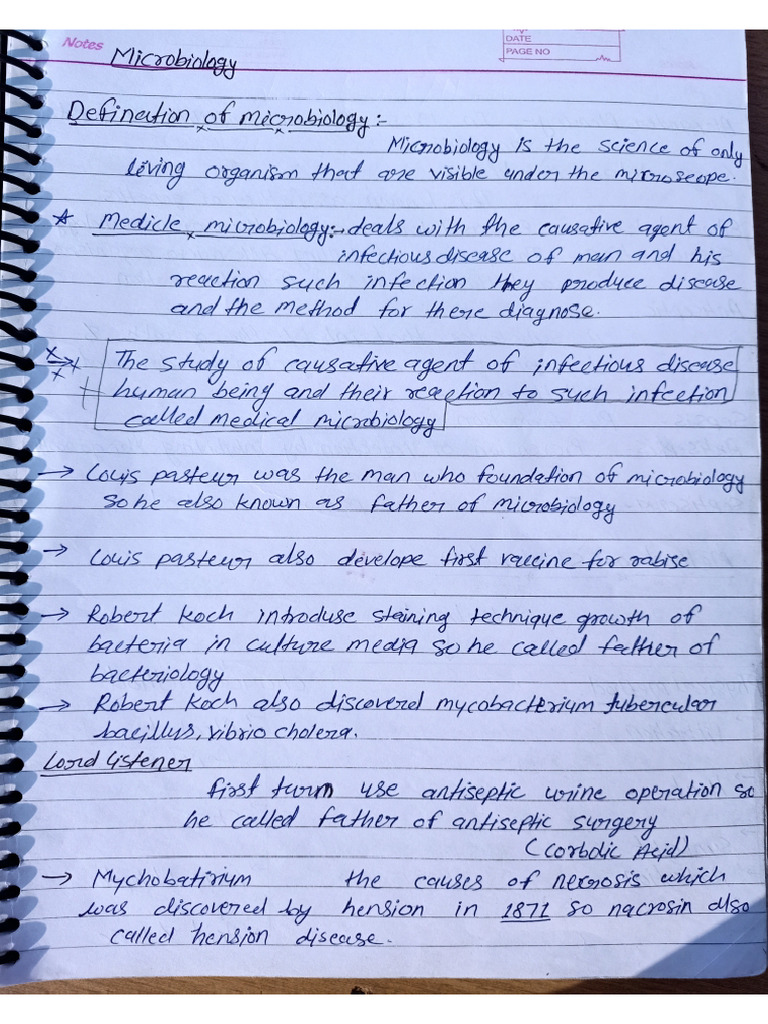 Notes
DATE
PAGE NO
Microbiology
Defination of microbiology :-
Microbiology is the science of only
living organism that are visible under the microscope.
* Medicle microbiology:- deals with the causative agent of
infectious disease of man and his
reaction such infection they produce disease
and the method for there diagnose.
The study of causative agent of infectious disease
human being and their reaction to such infection
called medical microbiology
→ Louis pasteur was the man who foundation of microbiology
so he also known as father of microbiology
→ Louis pasteur also develope first vaccine for rabise
→ Robert Koch introduse staining technique growth of
bacteria in culture media so he called father of
bacteriology
→ Robert Koch also discovered mycobacterium tubercular
bacillus, vibrio cholera.
Lord Listener
first turm use antiseptic urine operation so
he called father of antiseptic surgery
(Corbolic Acid)
→ Mychobatirium the causes of necrosis which
was discovered by hension in 1871 so nacrosin also
called hension disease.